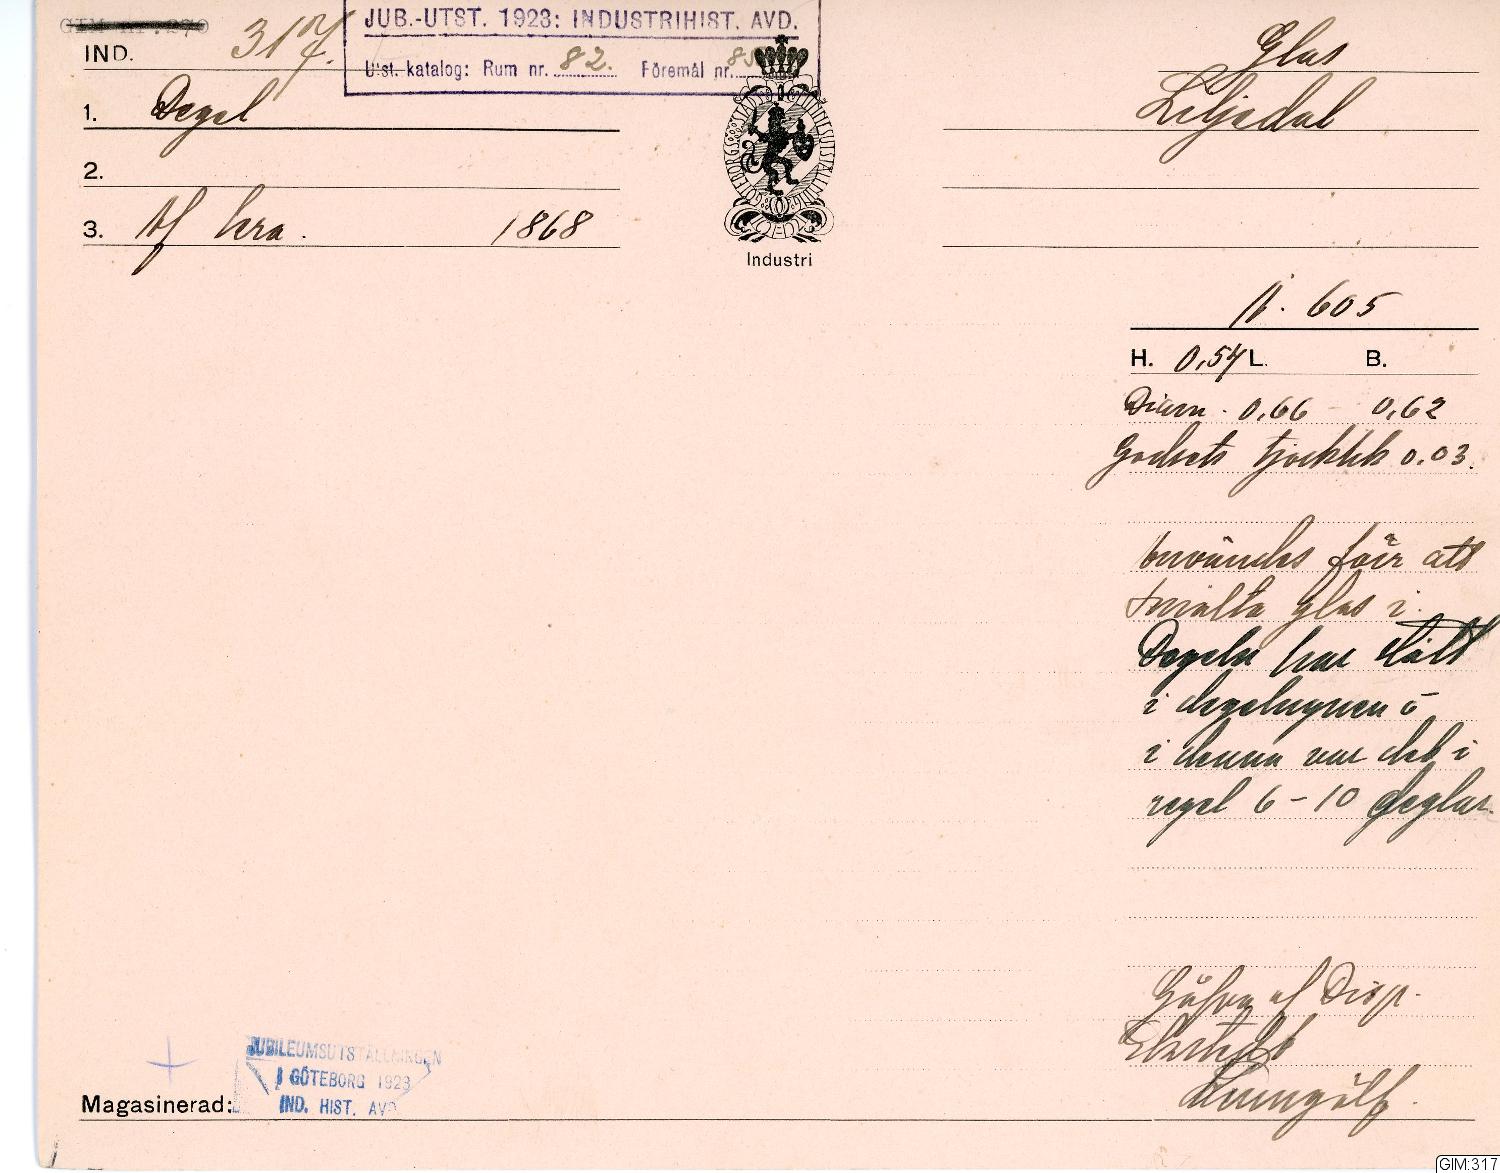 IND. 317.
JUB.-UTST. 1923: INDUSTRIHIST. AVD.
Utst. katalog: Rum nr. 82. Föremål nr.
Glas
1. Degel
Liljedal
2.
3. Af lera. 1868
GÖTEBORGS STADS MINNESUTSTÄLLNING
Industri
N. 605
H. 0,54 L. B.
Diam. 0,66 - 0,62
Godsets tjocklek 0.03.
Användes för att
smälta glas i.
Degeln har stått
i degelugnen o
i denna var det i
regel 6-10 deglar.
Gåfva af Disp.
Kungälf.
JUBILEUMSUTSTÄLLNINGEN
I GÖTEBORG 1923
IND. HIST. AVD.
Magasinerad:
GIM:317